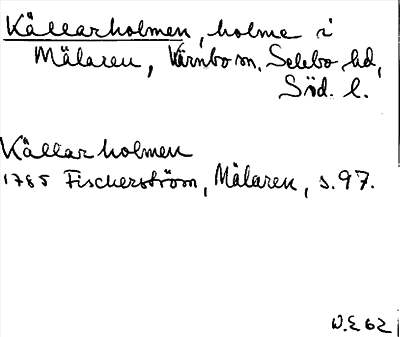 Källarholmen, holme i
Mälaren, Kärnbo sn, Selebo hd,
Söd. l.
Källarholmen
1785 Fischerström, Mälaren, s. 97.
W.E 62